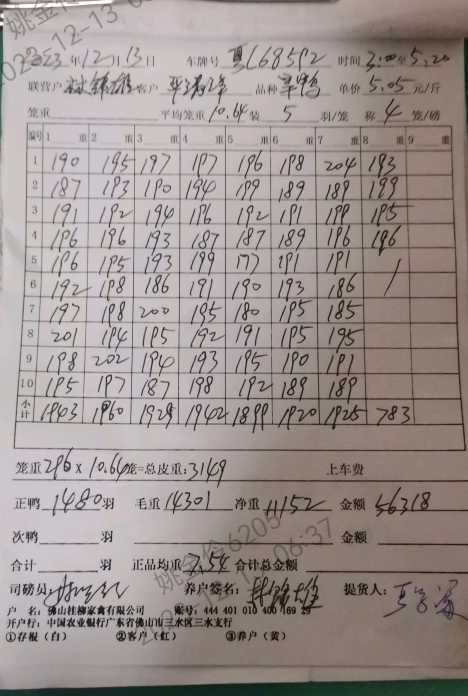 2023年12月13日 车牌号 粤L68592 时间3:00至5:20
联营户 林锦雄 客户 品种 单价5.05元/斤
笼重 平均笼重10.64 装5羽/笼 称4笼/磅
编号 1 重 2 重 3 重 4 重 5 重 6 重 7 重 8 重 9 重
1 190 195 197 197 196 198 204 193
2 187 193 190 194 199 189 189 199
3 191 192 194 196 192 191 199 195
4 196 196 193 187 187 189 196 196
5 196 195 193 199 177 191 191
6 192 198 186 191 190 193 186
7 197 198 200 195 180 195 185
8 201 194 195 192 191 195 195
9 198 202 194 193 195 190 191
10 195 197 187 198 192 189 189
小计 1943 1960 1929 1942 1899 1920 1925 783
笼重296×10.64笼=总皮重:3149 上车费
正鸭1480羽 毛重14301 净重11152 金额56318
次鸭 羽 金额
合计 羽 正品均重7.54 合计总金额
司磅员 养户签名:林锦雄 提货人:
户 名:佛山桂柳家禽有限公司 账号:444 401 010 400 169 29
开户行:中国农业银行广东省佛山市三水区三水支行
①存根(白) ②客户(红) ③养户(黄)